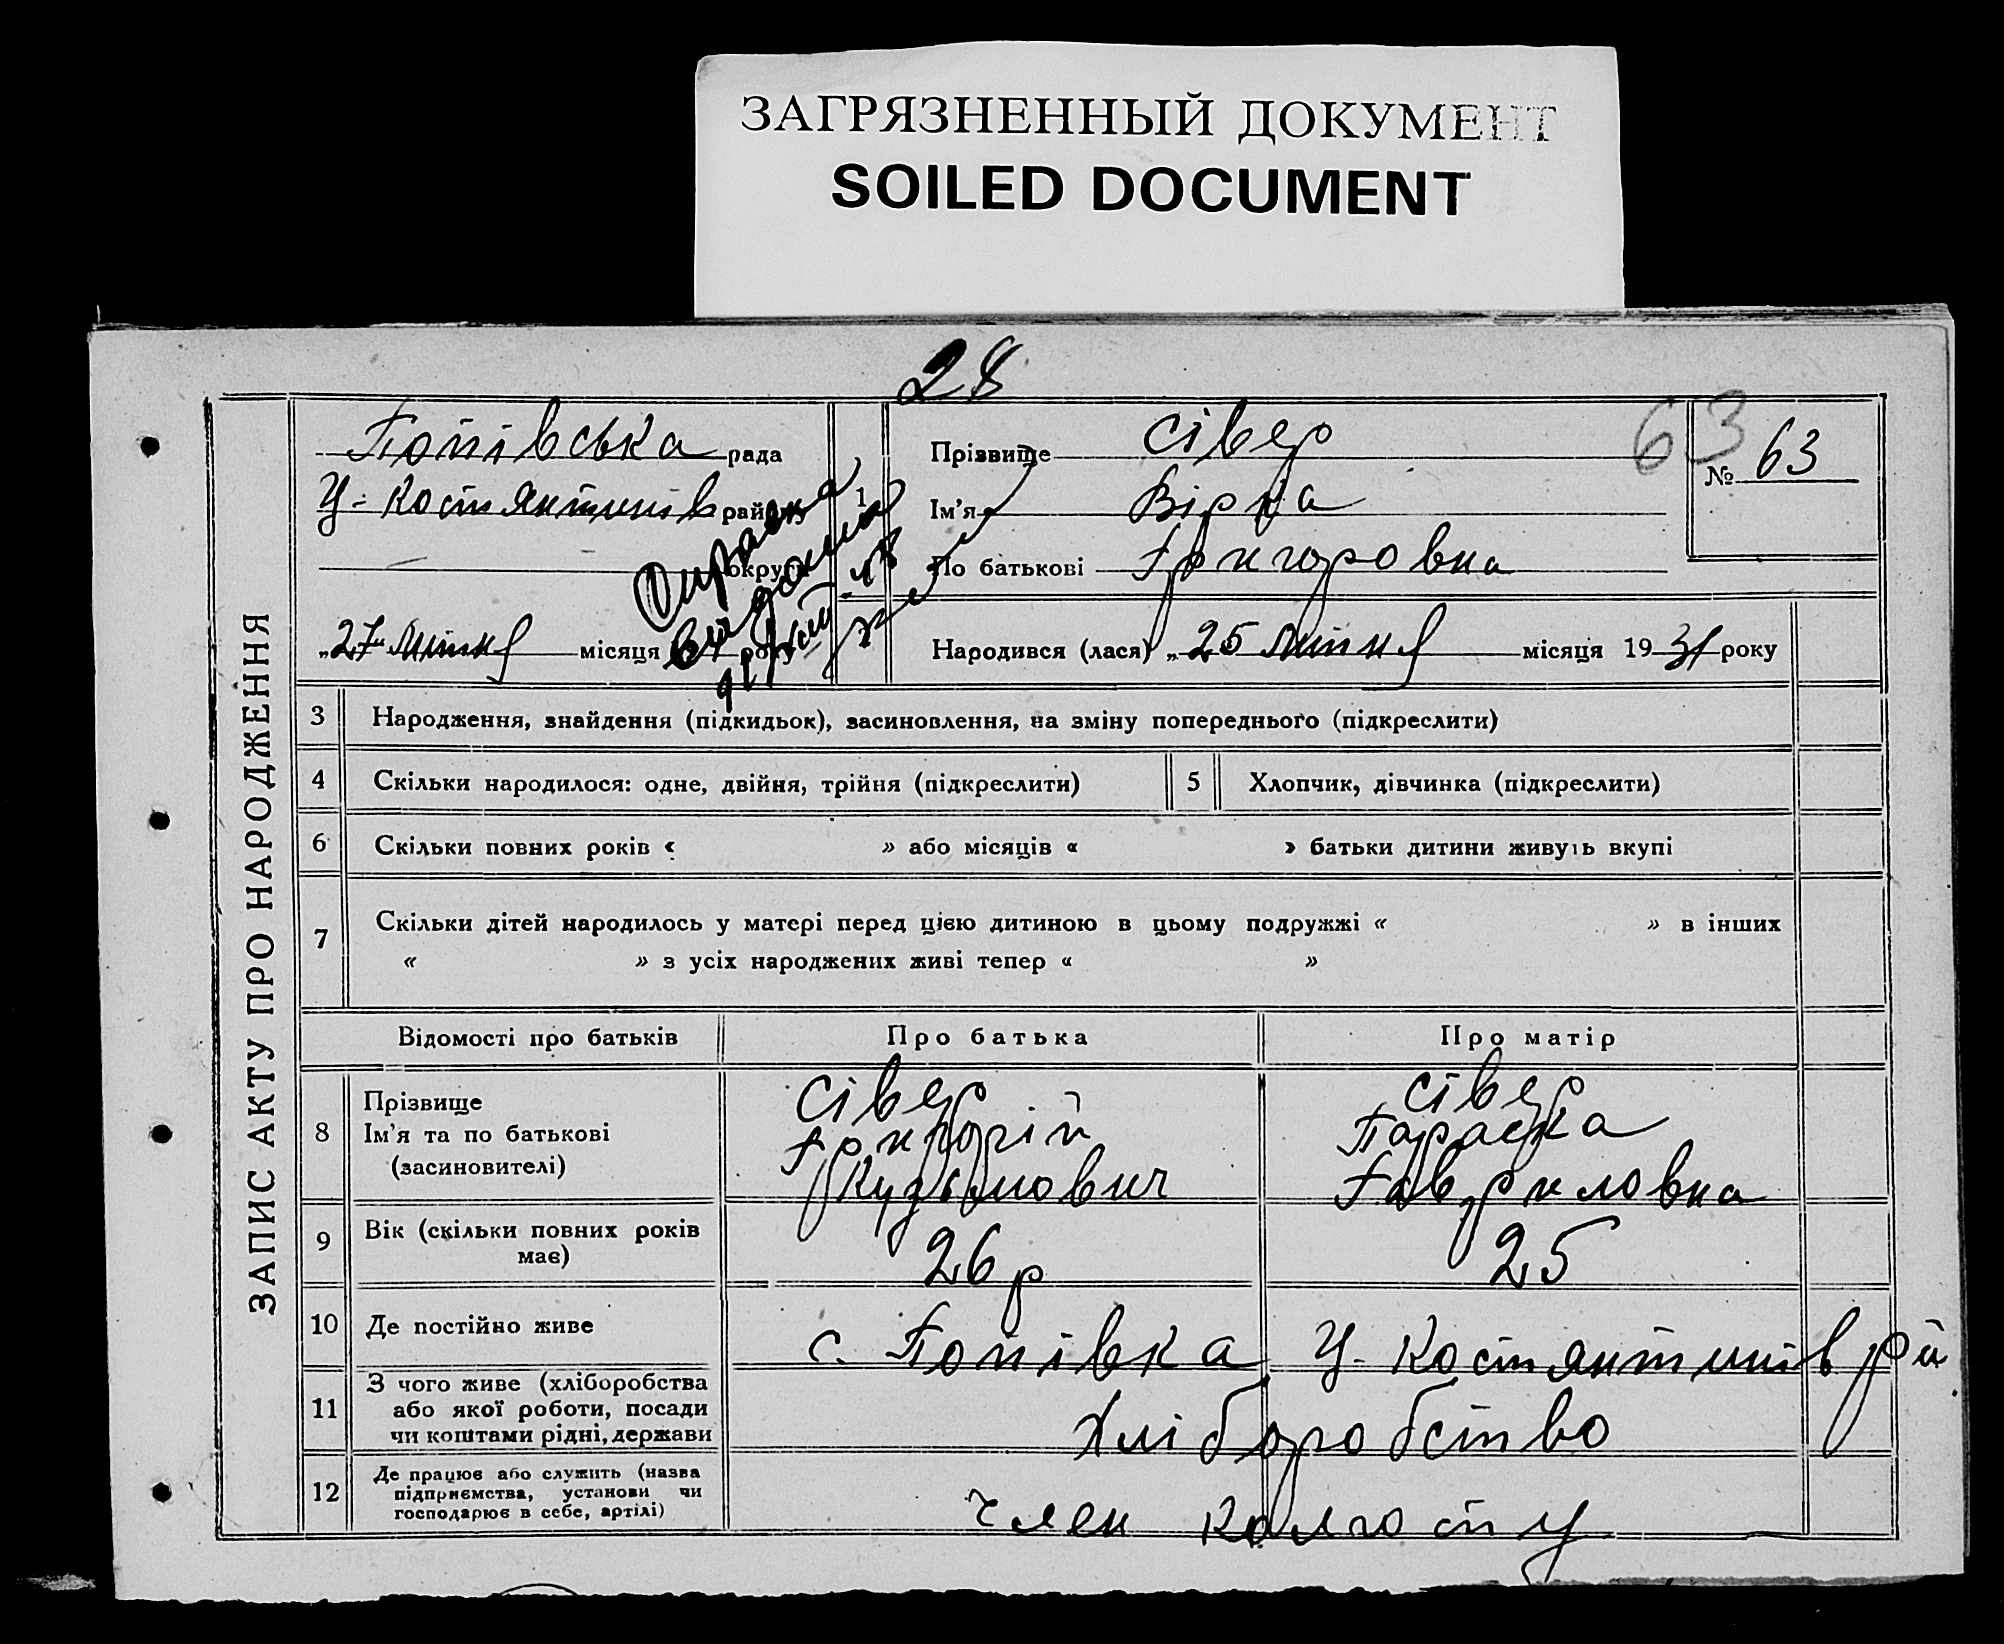 ЗАГРЯЗНЕННЫЙ ДОКУМЕНТ
SOILED DOCUMENT
28
63
ЗАПИС АКТУ ПРО НАРОДЖЕННЯ
Попівська рада
У-Костянтинів району
округи
„27" липня місяця року
Справка
видана
1
Прізвище Сівер
Ім'я Вірка
По батькові Григоровна
№ 63
Народився (лася) „25 липня місяця 1931 року
3 Народження, знайдення (підкидьок), засиновлення, на зміну попереднього (підкреслити)
4 Скільки народилося: одне, двійня, трійня (підкреслити) 5 Хлопчик, дівчинка (підкреслити)
6 Скільки повних років « » або місяців « » батьки дитини живуть вкупі
7 Скільки дітей народилось у матері перед цією дитиною в цьому подружжі « » в інших
« » з усіх народжених живі тепер « »
Відомості про батьків Про батька Про матір
8 Прізвище
Ім'я та по батькові
(засиновителі)
Сівер
Григорій
Кузьмович
Сівер
Параска
Гавриловна
9 Вік (скільки повних років
має)
26 р
25
10 Де постійно живе с. Попівка У-Костянтинів рй
11 З чого живе (хліборобства
або якої роботи, посади
чи коштами рідні, держави
Хліборобство
12 Де працює або служить (назва
підприємства, установи чи
господарює в себе, артілі)
Член колгоспу